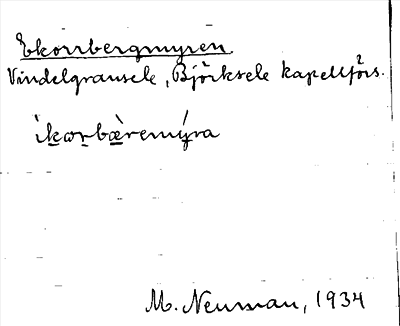 Ekorrbergmyren.
Vindelgransele, Björksele kapellförs.
ìkɷrbæ̀remýra
M. Neuman, 1934